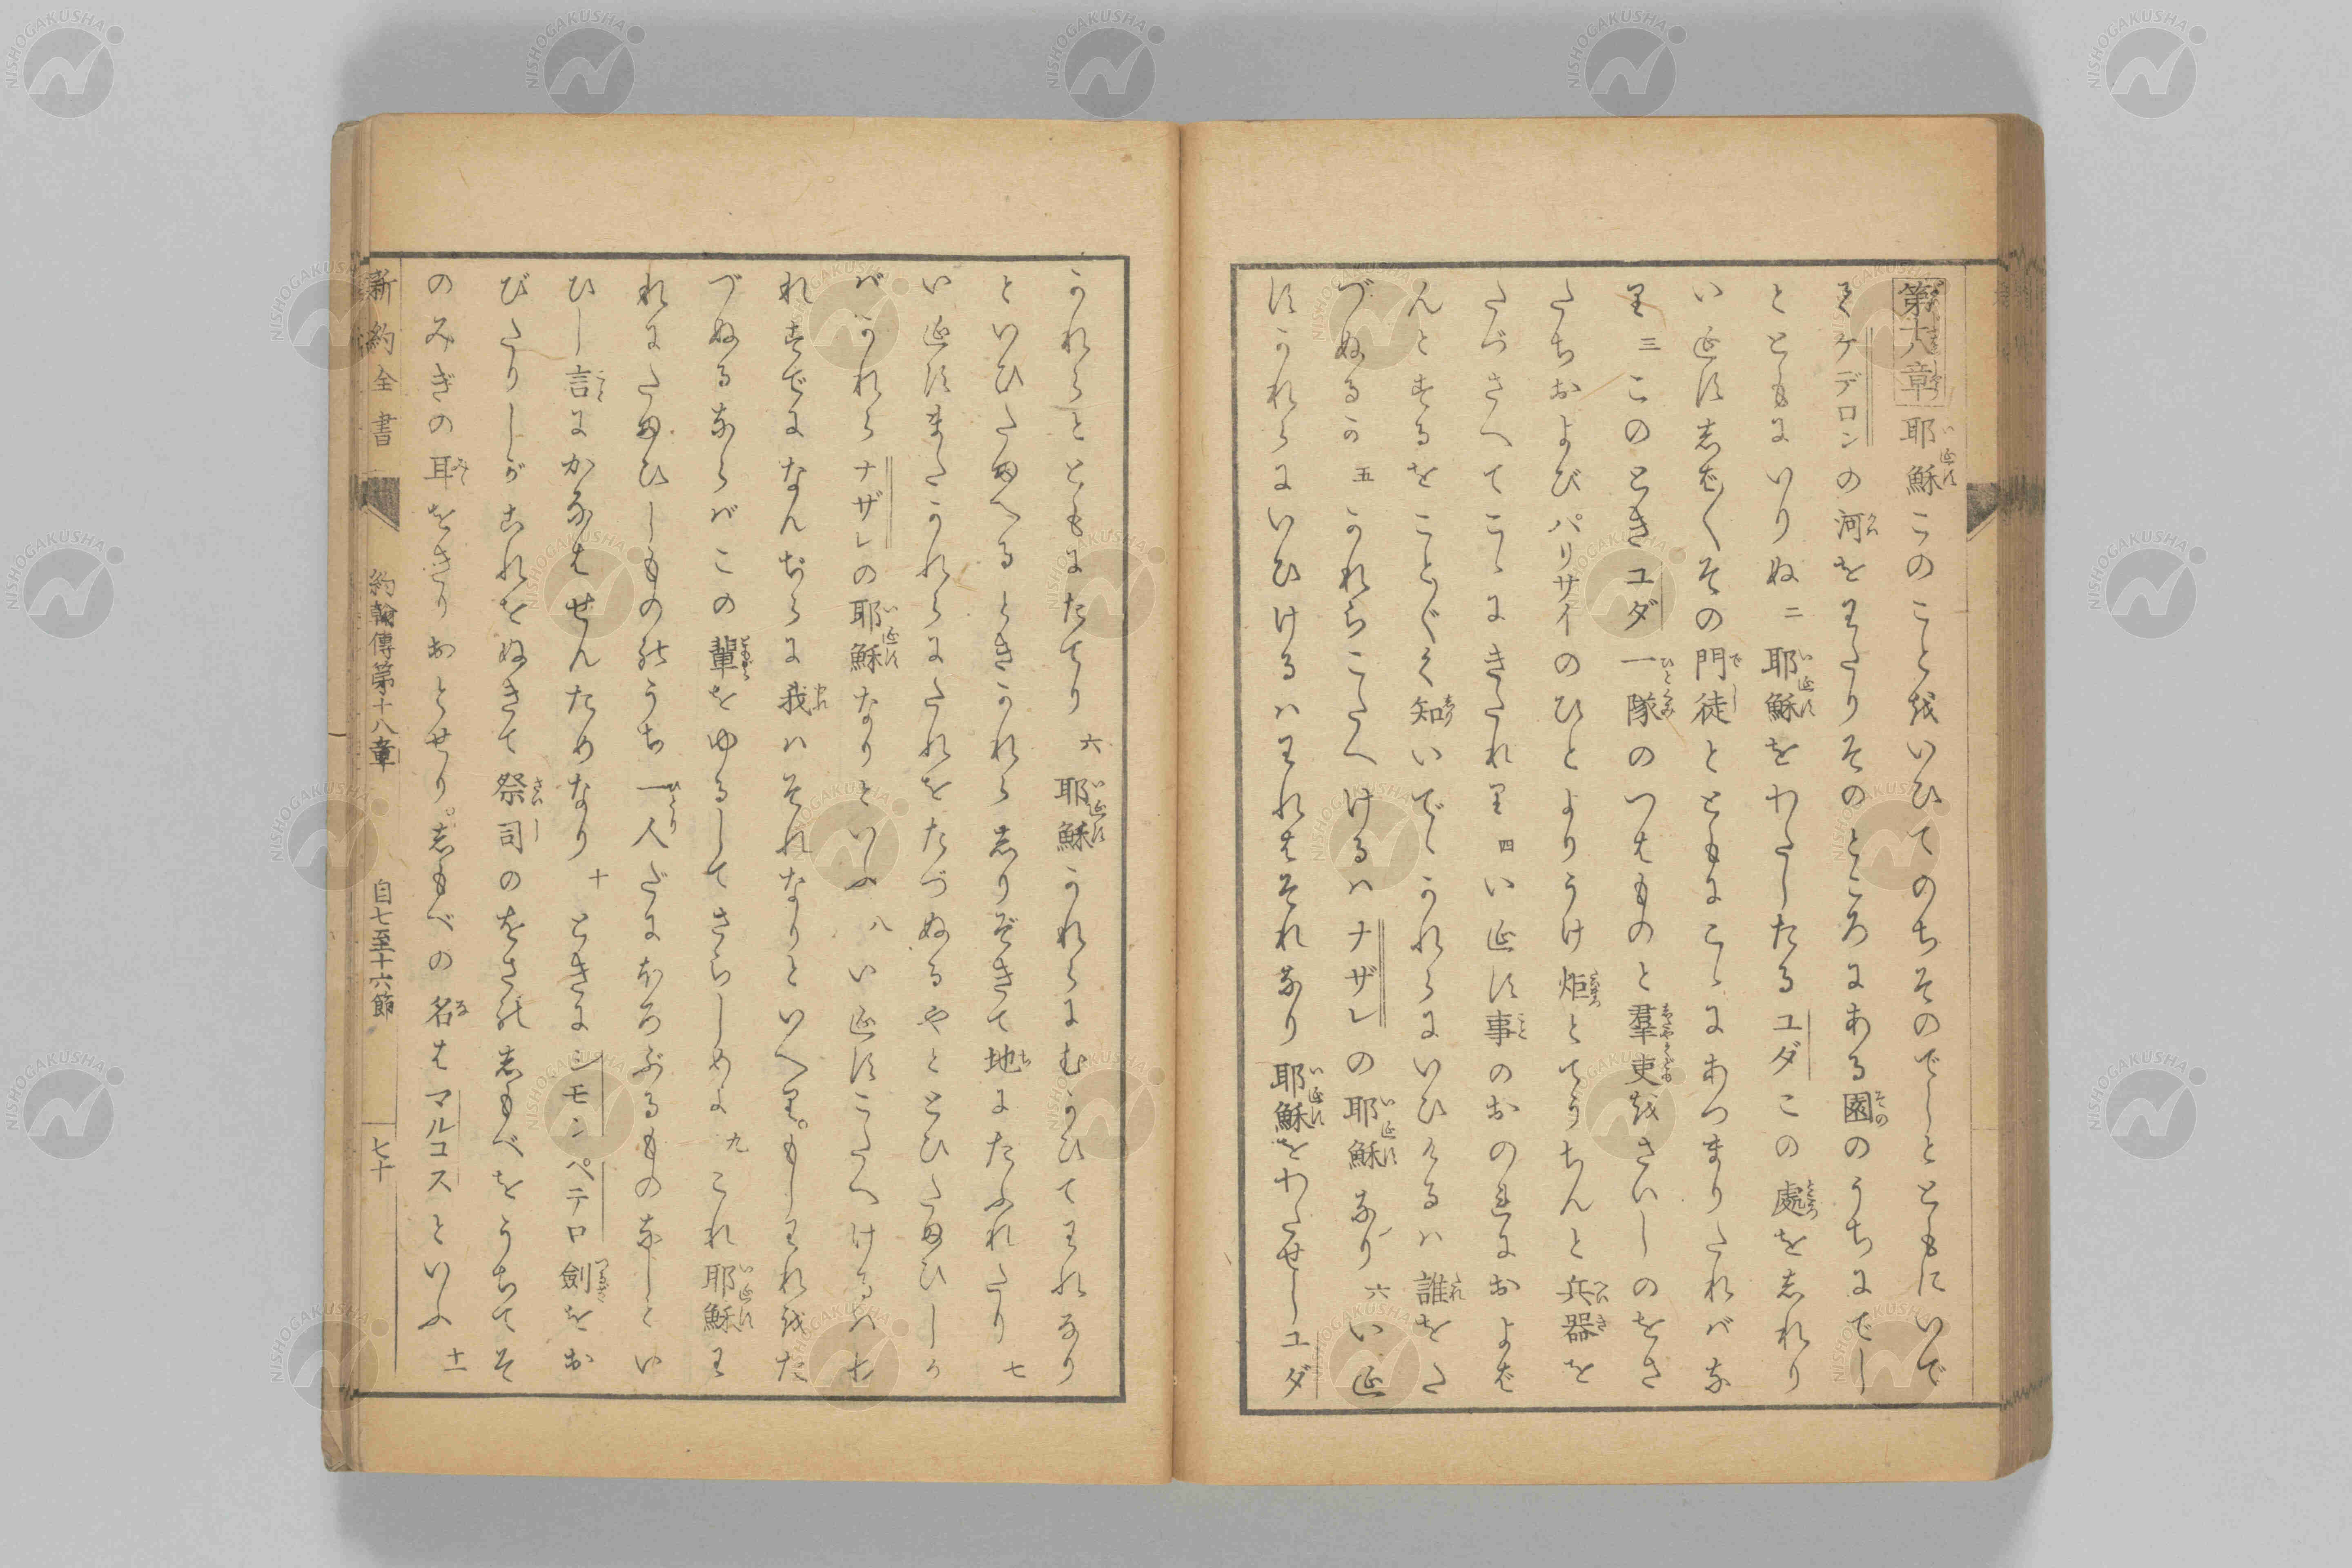 第十八章 耶穌このことをいひてのちそのでしとともにいで
てケデロンの河をわたりそのところにある園のうちにでし
とともにいりぬ 二 耶穌をわたしたるユダこの處をしれり
いエスしば〱その門徒とともにこゝにあつまりたればな
り 三 このときユダ一隊のつはものと羣吏をさいしのをさ
たちおよびパリサイのひとよりうけ炬とてうちんと兵器を
たづさへてこゝにきたれり 四 いエス事のおのれにおよば
んとするをこと〴〵く知いでゝかれらにいひけるハ誰をた
づぬるか 五 かれらこたへけるハナザレの耶穌なり 六 いエ
スかれらにいひけるハわれはそれなり耶穌をわたせしユダ
かれらとともにたてり 六 耶穌かれらにむかひてわれなり
といひたまへるときかれらしりぞきて地にたふれたり 七
いエスまたかれらにたれをたづぬるやととひたまひしか
バかれらナザレの耶穌なりといふ 八 いエスこたへけるハわ
れすでになんぢらに我ハそれなりといへり。もしわれをた
づぬるならバこの輩をゆるしてさらしめよ 九 これ耶穌わ
れにたまひしもののうち一人だにほろぶるものなしとい
ひし言にかなはせんためなり 十 ときにシモンペテロ劍をお
びたりしがこれをぬきて祭司のをさのしもべをうちてそ
のみぎの耳をきりおとせり。しもべの名はマルコスといふ 十一
新約全書 約翰傳第十八章 自七至十六節 七十